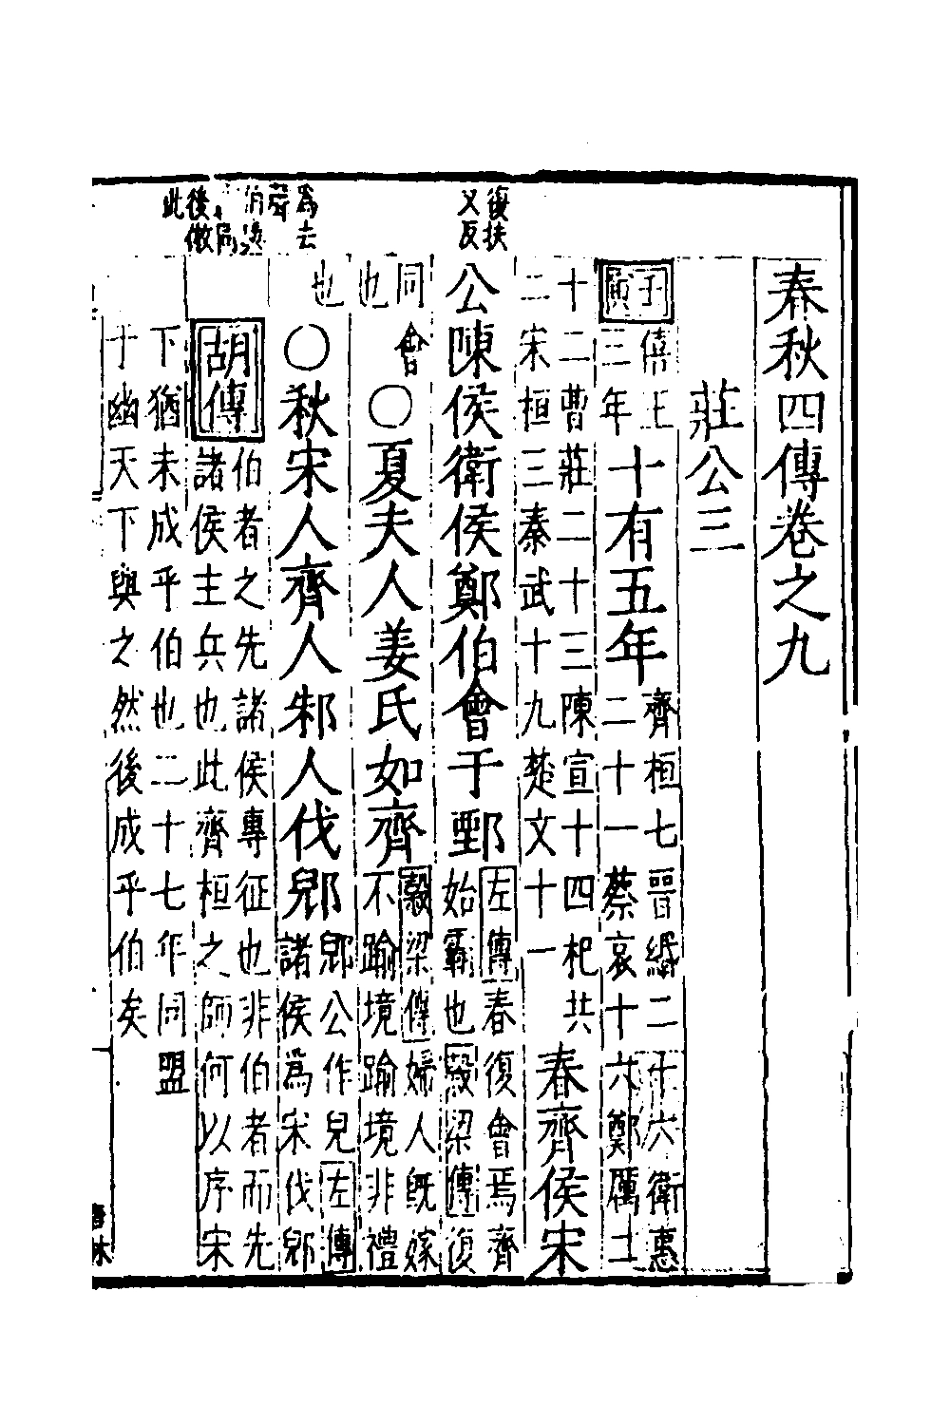 春秋四傳卷之九
莊公三
壬寅僖王三年十有五年齊桓七晉緡二十六衛惠二十一蔡哀十六鄭厲二
十二曹莊二十三陳宣十四杞共二宋桓三秦武十九楚文十一春齊侯宋
公陳侯衛侯鄭伯會于鄄左傳春復會焉齊始霸也穀梁傳復
同會也〇夏夫人姜氏如齊穀梁傳婦人既嫁不踰境踰境非禮
也〇秋宋人齊人邾人伐郳郳公作兒左傳諸侯為宋伐郳
胡傳伯者之先諸侯專征也非伯者而先諸侯主兵也此齊桓之師何以序宋
下猶未成乎伯也二十七年同盟
于幽天下與之然後成乎伯矣
復扶又反
為去聲
後倣此